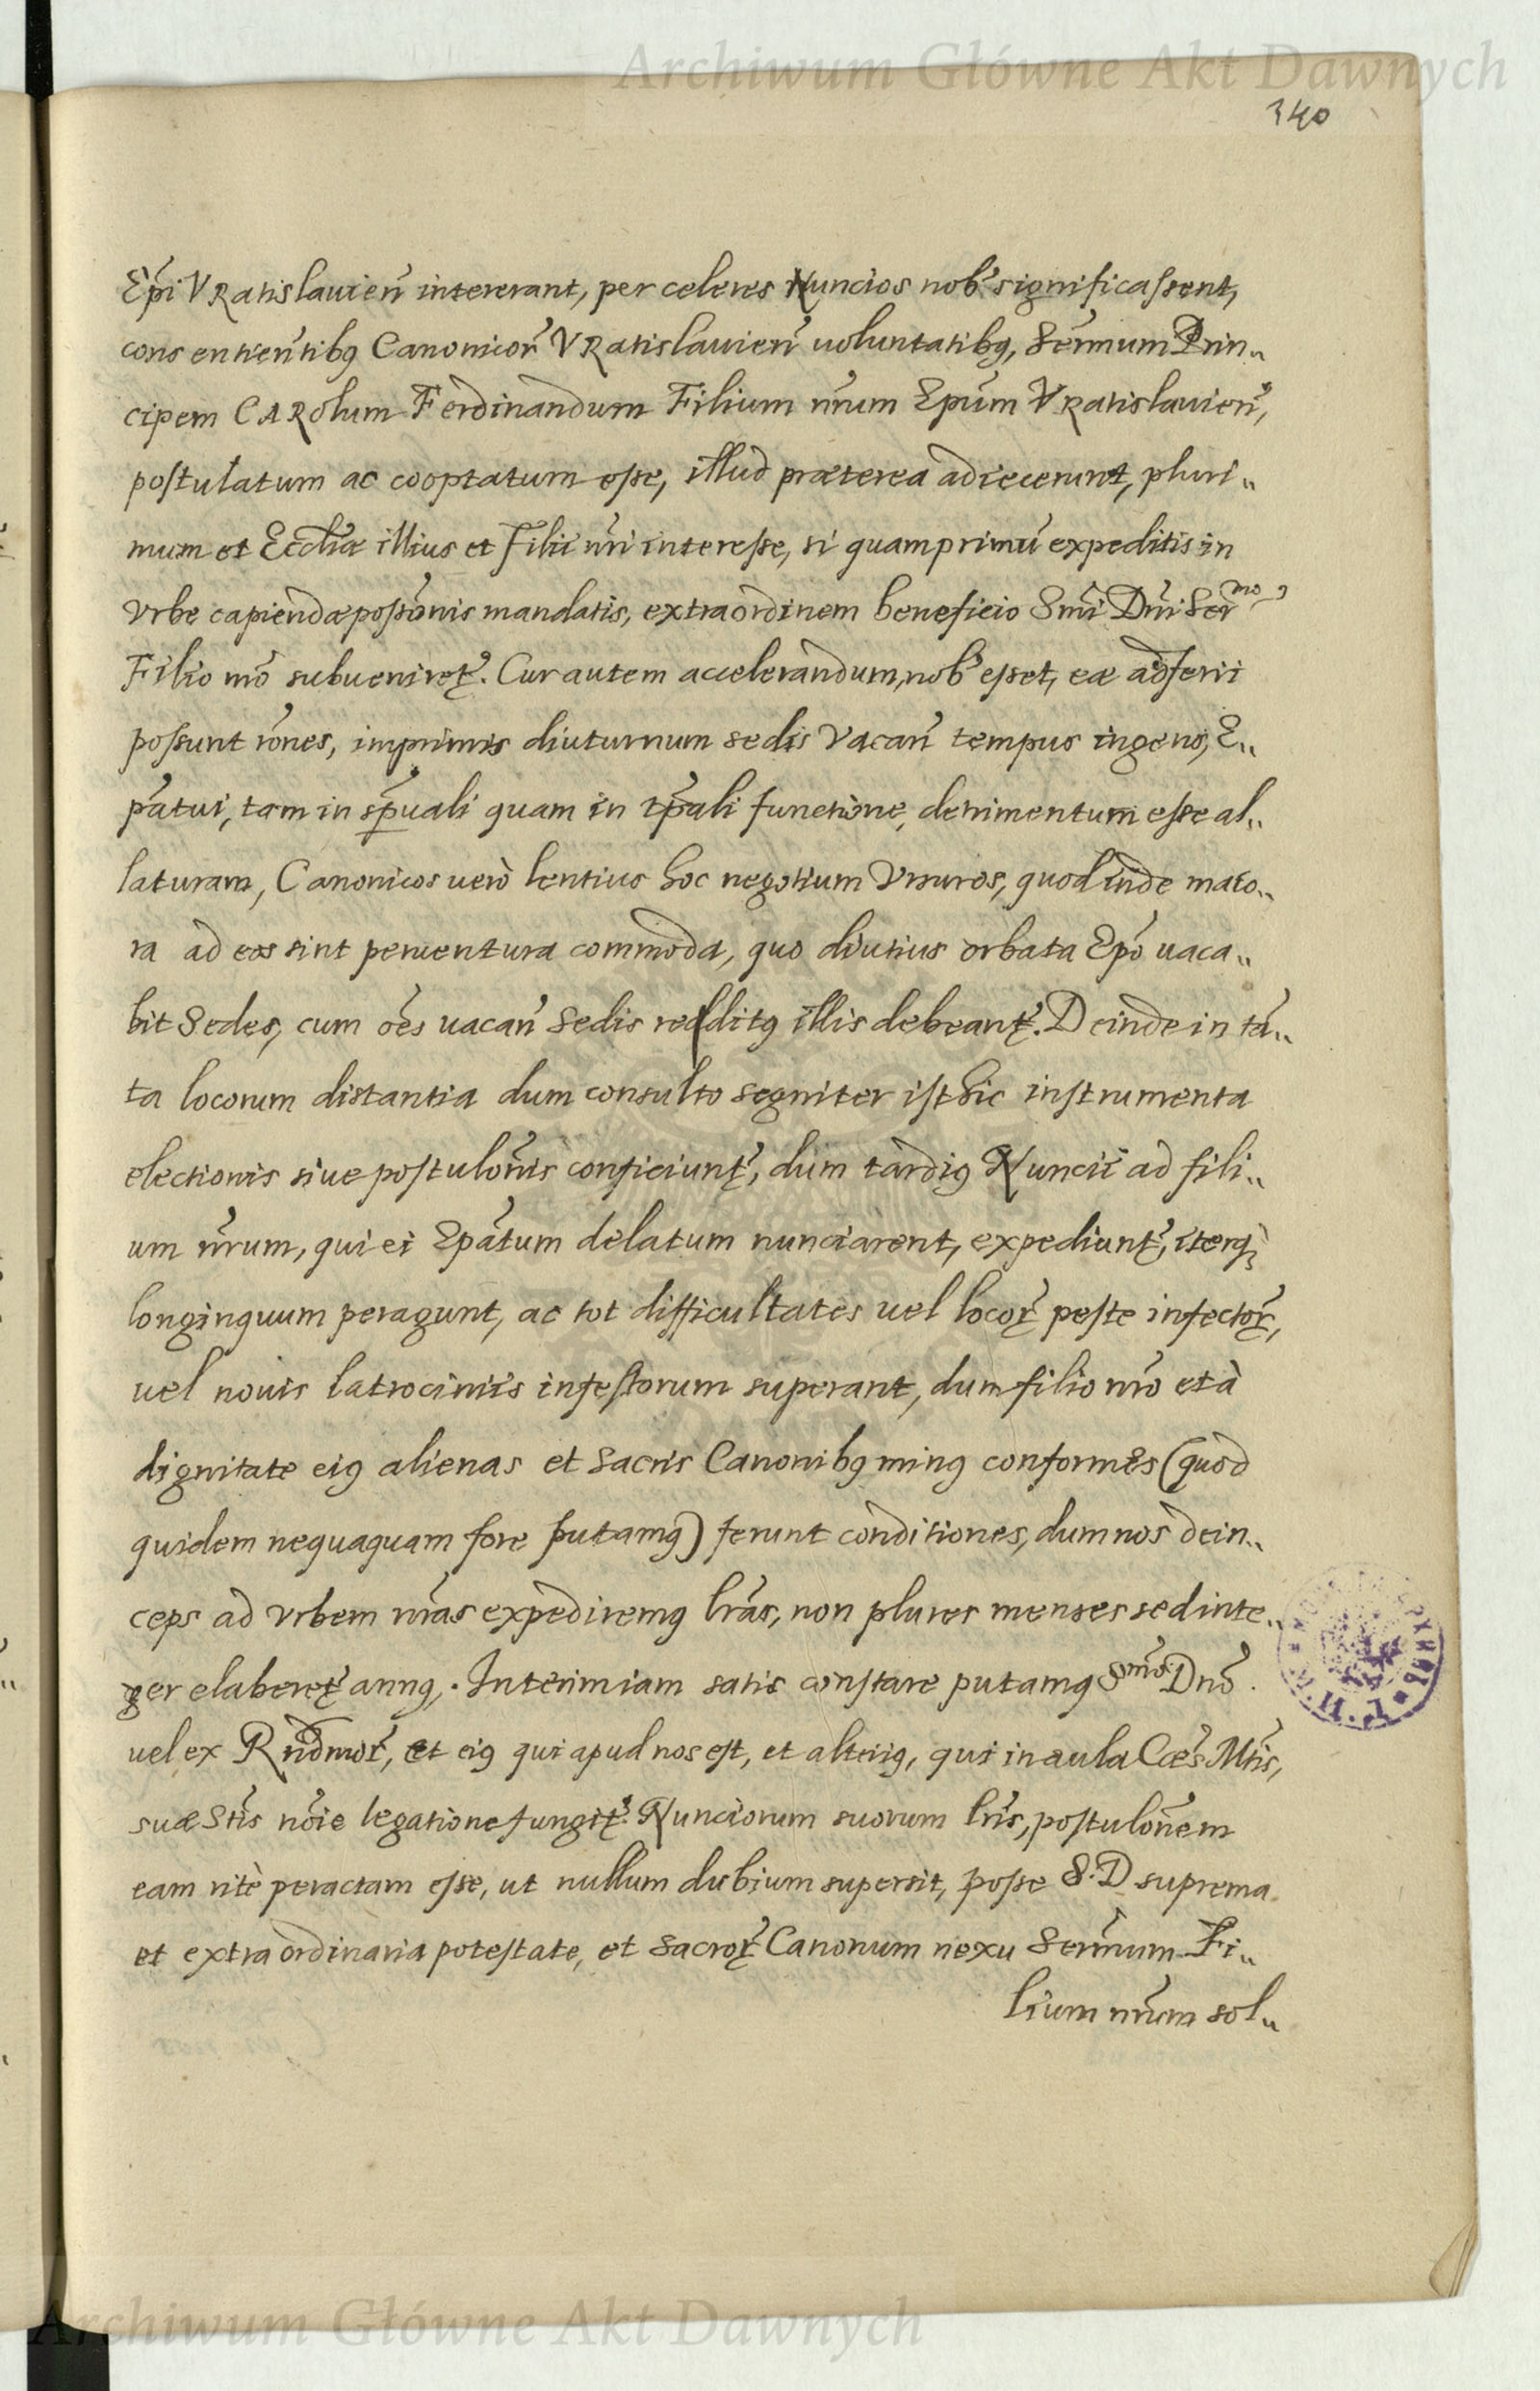 Archiwum Główne Akt Dawnych
340
Epĩ VRatislauień intererant, per celeres Nuncios nob significassent,
consentientibꝯ Canonicoꝝ VRatislauień uoluntatibꝯ, Sermum Prin„
cipem CARolum Ferdinandum Filium nrum Epum VRatislauień,
postulatum ac cooptatum esse, illud præterea adiecerunt, pluri„
mum et Eccliæ illius et Filii nri interesse, si quamprimũ expeditis in
Vrbe capiendæ possonis mandatis, extraordinem beneficio Smi Dni Sermo
Filio nro subuenireꝉ. Cur autem accelerandum, nob esset, eæ adferri
possunt rones, imprimis diuturnum sedis Vacań tempus ingens, E„
patui, tam in spuali quam in tpali functione, detrimentum esse al„
laturam, Canonicos uerò lentius hoc negotium Vrsuros, quod inde maio„
ra ad eos sint peruentura commoda, quo diutius orbata Epo uaca„
bit Sedes, cum oes uacań Sedis redditꝯ illis debeanꝉ. Deinde in tã„
ta locorum distantia dum consulto segniter isthic instrumenta
electionis siue postulonis conficiunꝉ, dum tardiꝯ Nuncii ad fili„
um nrum, qui ei Epatum delatum nunciarent, expediunꝉ, iterqꝫ
longinquum peragunt, ac tot difficultates uel locoꝝ peste infectoꝝ,
uel nouis latrociniis infestorum superant, dum filio nro et à
dignitate eiꝯ alienas et Sacris Canonibꝯ minꝯ conformes (quod
quidem nequaquam fore putamꝯ) ferunt conditiones, dum nos dein„
ceps ad Vrbem nras expediremꝯ lras, non plures menses sed inte„
ger elabereꝉ annꝯ. Interim iam satis constare putamꝯ Smo Dno.
uel ex Rndmoꝝ, et eiꝯ qui apud nos est, et alteriꝯ, qui in aula Cæs Mtis,
suæ Stis noie legatione fungiꝉ. Nunciorum suorum lris, postulonem
eam ritè peractam esse, ut nullum dubium supersit, posse S. D suprema
et extraordinaria potestate, et Sacroꝝ Canonum nexu Sermum Fi„
lium nrum sol„
Archiwum Główne Akt Dawnych